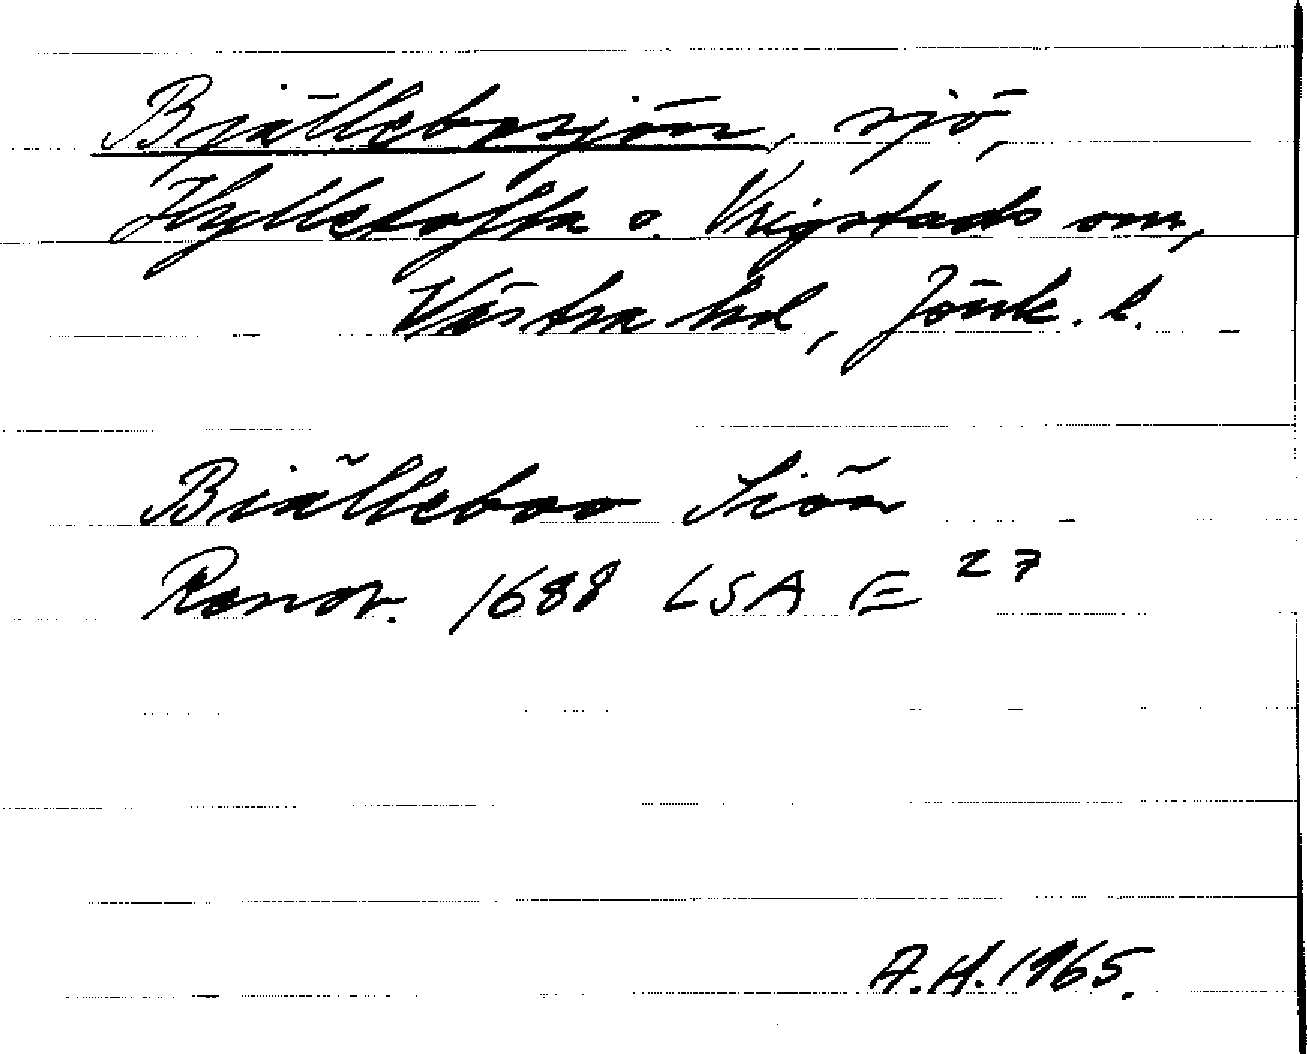 Bjällebosjön, sjö,
Hylletofta o. Vrigstads snr,
Västra hd, Jönk. l.
Biälleboo Siön
Renov. 1688 LSA E 27
A.H. 1965.